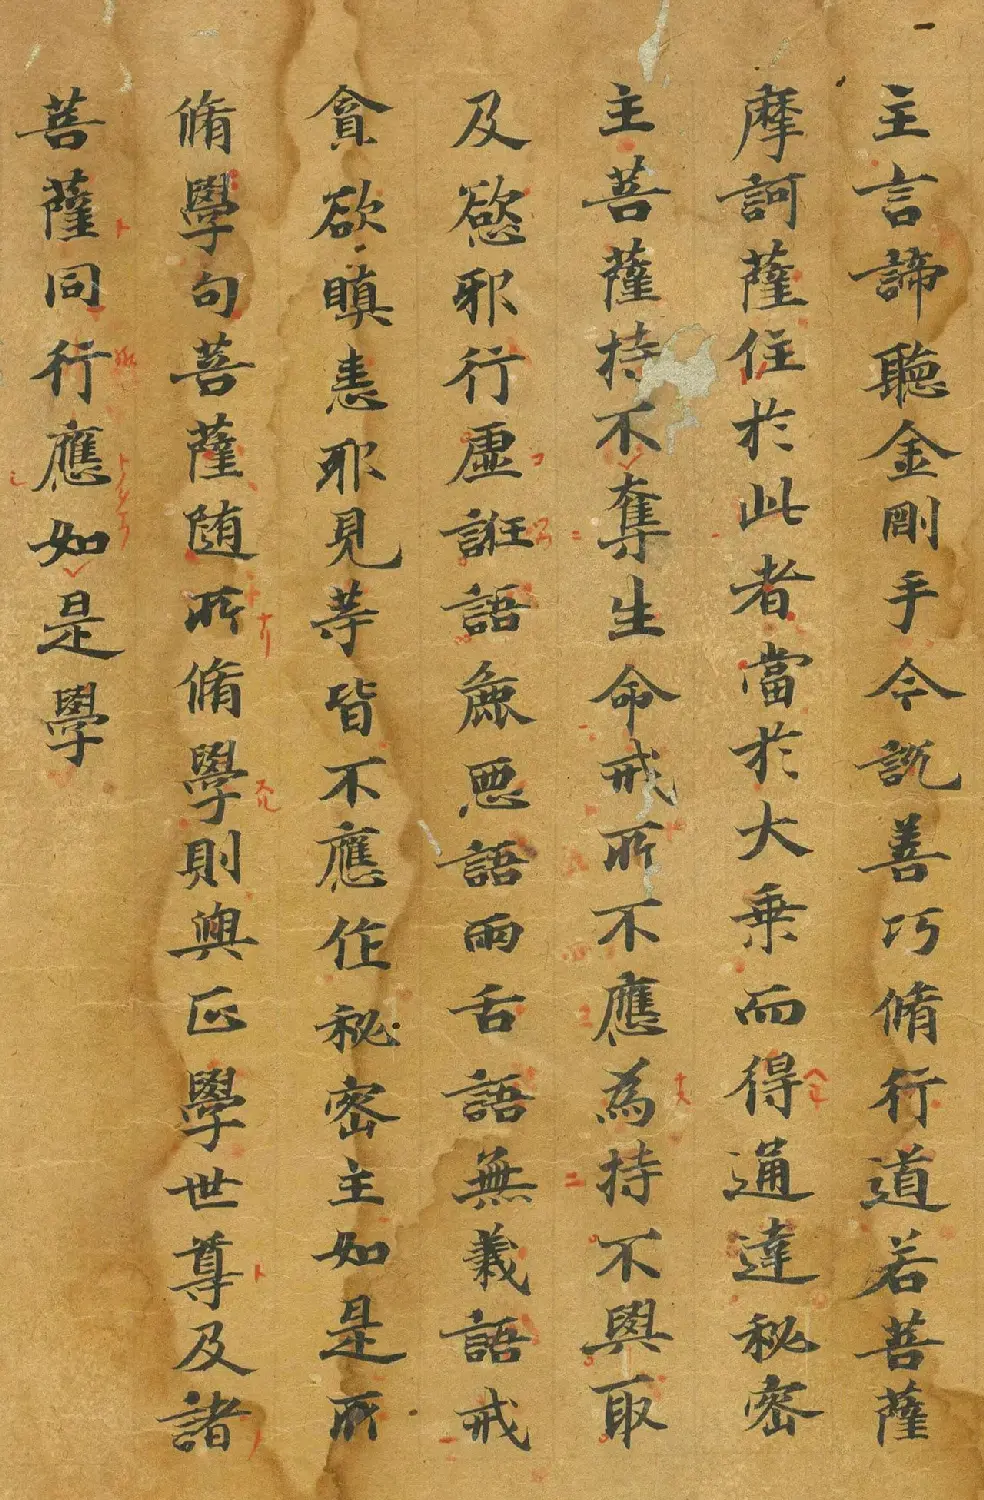 主言諦聽金剛手今說善巧脩行道若菩薩
摩訶薩住於此者當於大乗而得通達秘密
主菩薩持不奪生命戒所不應為持不與取
及慾邪行虛誑語麁惡語兩舌語無義語戒
貪欲瞋恚邪見等皆不應作秘密主如是所
脩學句菩薩随所脩學則與正學世尊及諸
菩薩同行應如是學